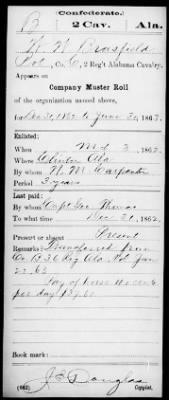 (Confederate.)
B 2 Cav. Ala.
W. W. Brasfield
Pvt, Co. C, 2 Reg't Alabama Cavalry.
Appears on
Company Muster Roll
of the organization named above,
for Dec 31, 1862 to June 30, 1863.
Enlisted:
When Mch 3, 1862.
Where Clinton Ala
By whom W. M. Carpenter
Period 3 years
Last paid:
By whom Capt Geo Thomas
To what time Dec 31, 1862.
Present or absent Present
Remarks: Transferred from
Co. B 36 Reg Ala Vol Jan
22. 63
Pay of horse 40 cents
per day $
J E Douglas
(642) Copyist.